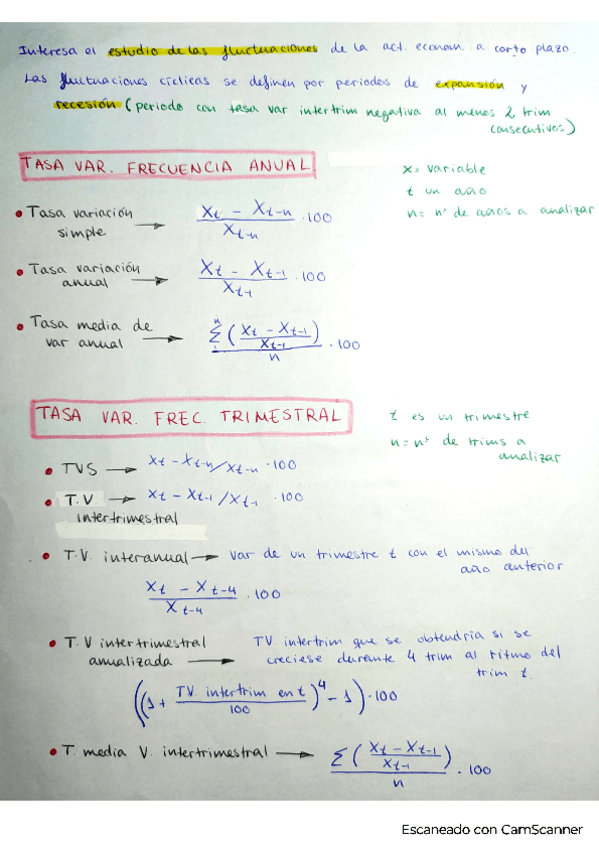 Interesa el estudio de las fluctuaciones de la act. econom. a corto plazo.
Las fluctuaciones cíclicas se definen por periodos de expansión y
recesión (periodo con tasa var intertrim negativa al menos 2 trim
consecutivos)
TASA VAR. FRECUENCIA ANUAL
x = variable
t un año
n = nº de años a analizar
• Tasa variación simple → (Xt - Xt-n) / Xt-n · 100
• Tasa variación anual → (Xt - Xt-1) / Xt-1 · 100
• Tasa media de var anual → Σ ((Xt - Xt-1) / Xt-1) / n · 100
TASA VAR. FREC. TRIMESTRAL
t es un trimestre
n = nº de trims a
analizar
• TVS → Xt - Xt-n / Xt-n · 100
• T.V → Xt - Xt-1 / Xt-1 · 100
intertrimestral
• T.V. interanual → Var de un trimestre t con el mismo del
año anterior
(Xt - Xt-4) / Xt-4 · 100
• T.V intertrimestral anualizada → TV. intertrim que se obtendría si se
creciese durante 4 trim al ritmo del
trim t.
((1 + TV intertrim en t / 100)^4 - 1) · 100
• T. media V. intertrimestral → Σ ((Xt - Xt-1) / Xt-1) / n · 100
Escaneado con CamScanner